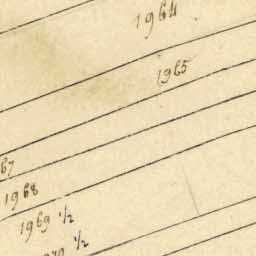 1964
1965
67
1968
1969 1/2
1970 1/2